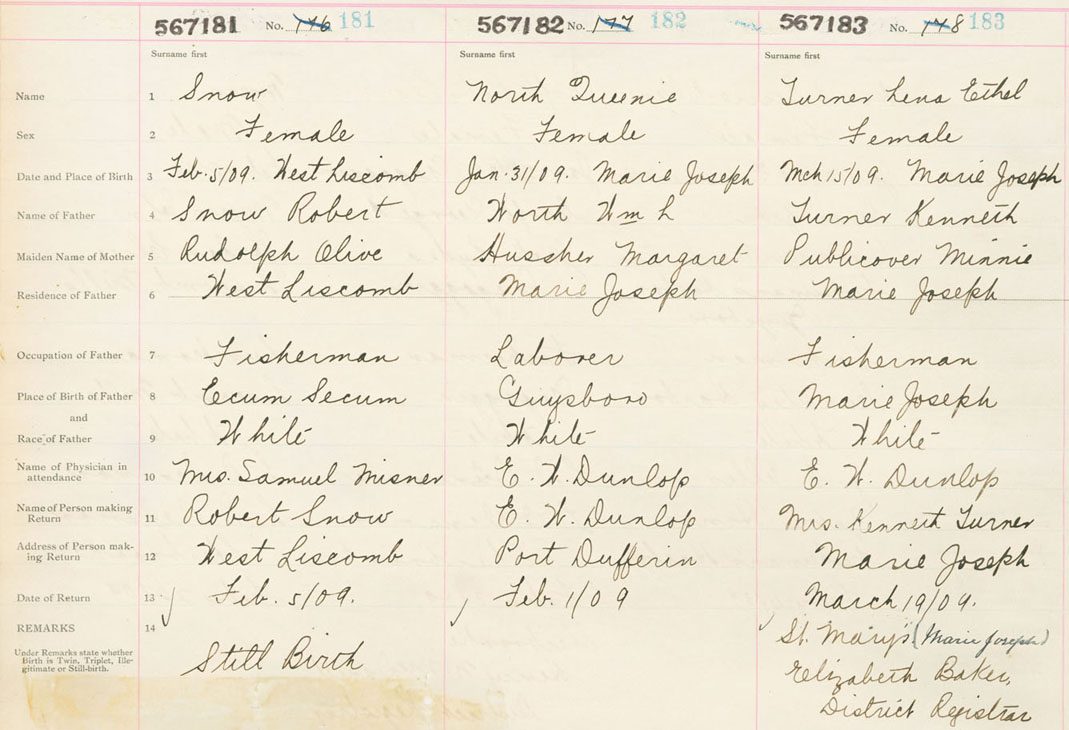 567181 No. 176 181 567182 No. 177 182 567183 No. 178 183
Surname first Surname first Surname first
Name 1 Snow North Queenie Turner Lena Ethel
Sex 2 Female Female Female
Date and Place of Birth 3 Feb. 5/09. West Liscomb Jan. 31/09. Marie Joseph Mch 15/09. Marie Joseph
Name of Father 4 Snow Robert North Wm L Turner Kenneth
Maiden Name of Mother 5 Rudolph Olive Husscher Margaret Publicover Minnie
Residence of Father 6 West Liscomb Marie Joseph Marie Joseph
Occupation of Father 7 Fisherman Laborer Fisherman
Place of Birth of Father 8 Ecum Secum Guysboro Marie Joseph
and
Race of Father 9 White White White
Name of Physician in attendance 10 Mrs. Samuel Misner E. W. Dunlop E. W. Dunlop
Name of Person making Return 11 Robert Snow E. W. Dunlop Mrs. Kenneth Turner
Address of Person mak-ing Return 12 West Liscomb Port Dufferin Marie Joseph
Date of Return 13 Feb. 5/09. Feb. 1/09 March 19/09.
REMARKS 14 St. Mary's (Marie Joseph)
Under Remarks state whether
Birth is Twin, Triplet, Ille-
gitimate or Still-birth.
Still Birth Elizabeth Baker,
District Registrar